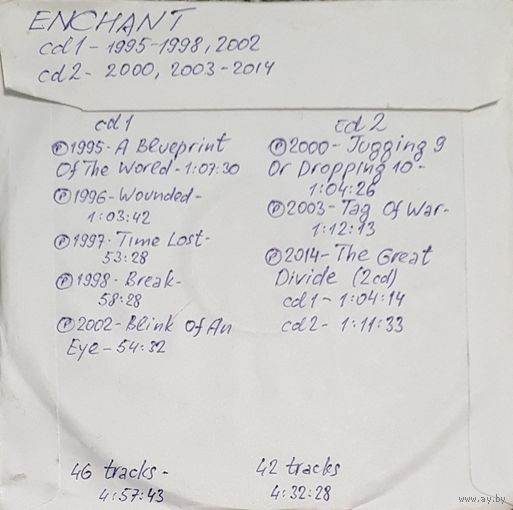 ENCHANT
cd1 - 1995-1998, 2002
cd2 - 2000, 2003-2014
cd1
Ⓟ1995- A Blueprint
Of The World - 1:07:30
Ⓟ1996- Wounded -
1:03:42
Ⓟ1997- Time Lost -
53:28
Ⓟ1998- Break -
58:28
Ⓟ2002- Blink Of An
Eye - 54:32
46 tracks -
4:57:43
cd2
Ⓟ2000- Jugging 9
Or Dropping 10 -
1:04:26
Ⓟ2003- Tag Of War -
1:12:13
Ⓟ2014- The Great
Divide (2cd)
cd1 - 1:04:14
cd2 - 1:11:33
42 tracks
4:32:28
www.ay.by